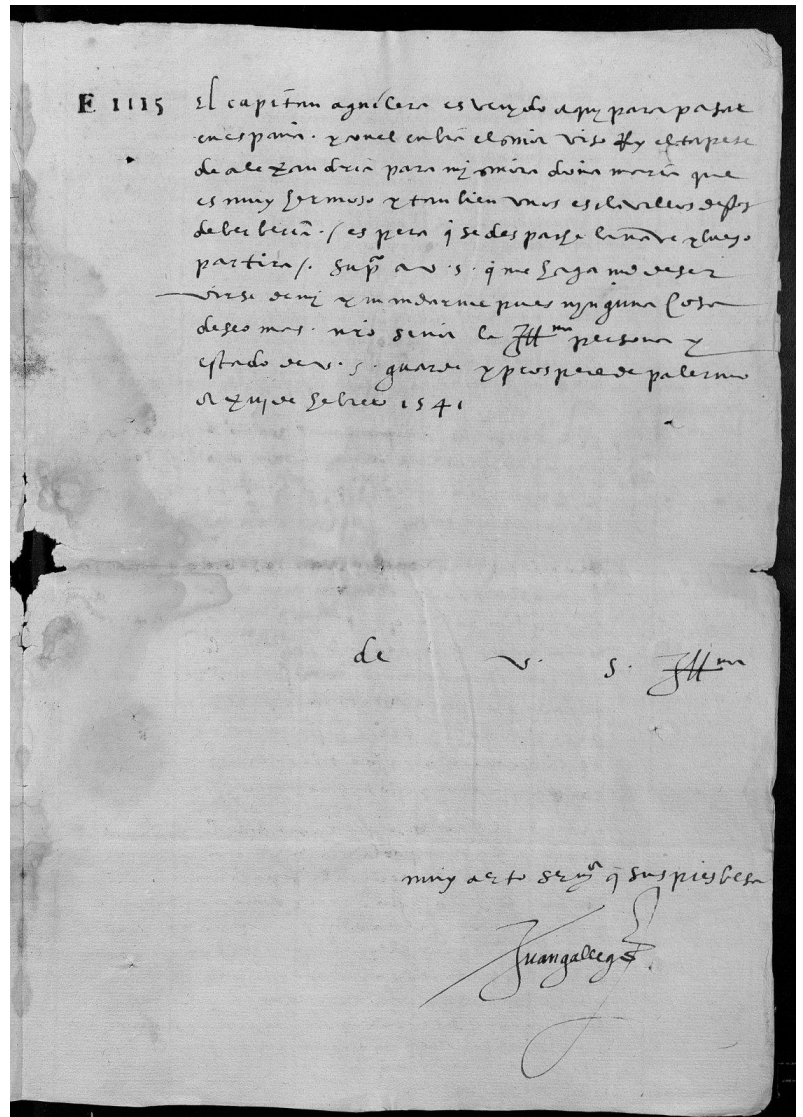 E 1115
El capitan aguilera es venydo aquy para pasar
en españa. y con el enbia el señor viso Rey el tapete
de alexandria para mi señora doña maria que
es muy hermoso y tambien unos esclavillos destos
de berberia. / espera q̃ se despache la nave y luego
partira /. Sup.co a v. s. q̃ me haga md de ser
virse de mj y mandarme pues njnguna Cosa
deseo mas. nro señor la Ill.ma persona y
estado de v. s. guarde y prospere de palermo
a de hebrero 1541
de v. s. Ill.ma
muy çierto ser.or q̃ sus pies besa
Juan gallego